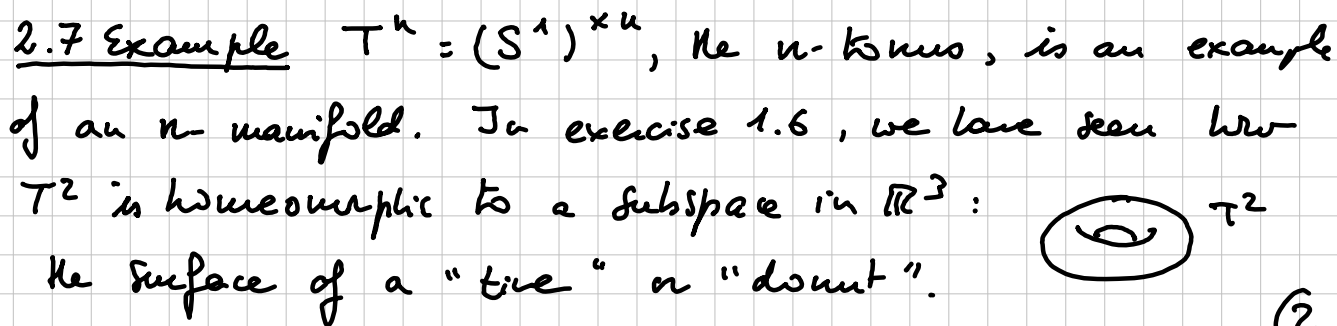 2.7 Example Tⁿ = (S¹)^{×n}, the n-torus, is an example
of an n-manifold. In exercise 1.6, we have seen how
T² is homeomorphic to a subspace in ℝ³: T²
the surface of a "tire" or "donut".
(2